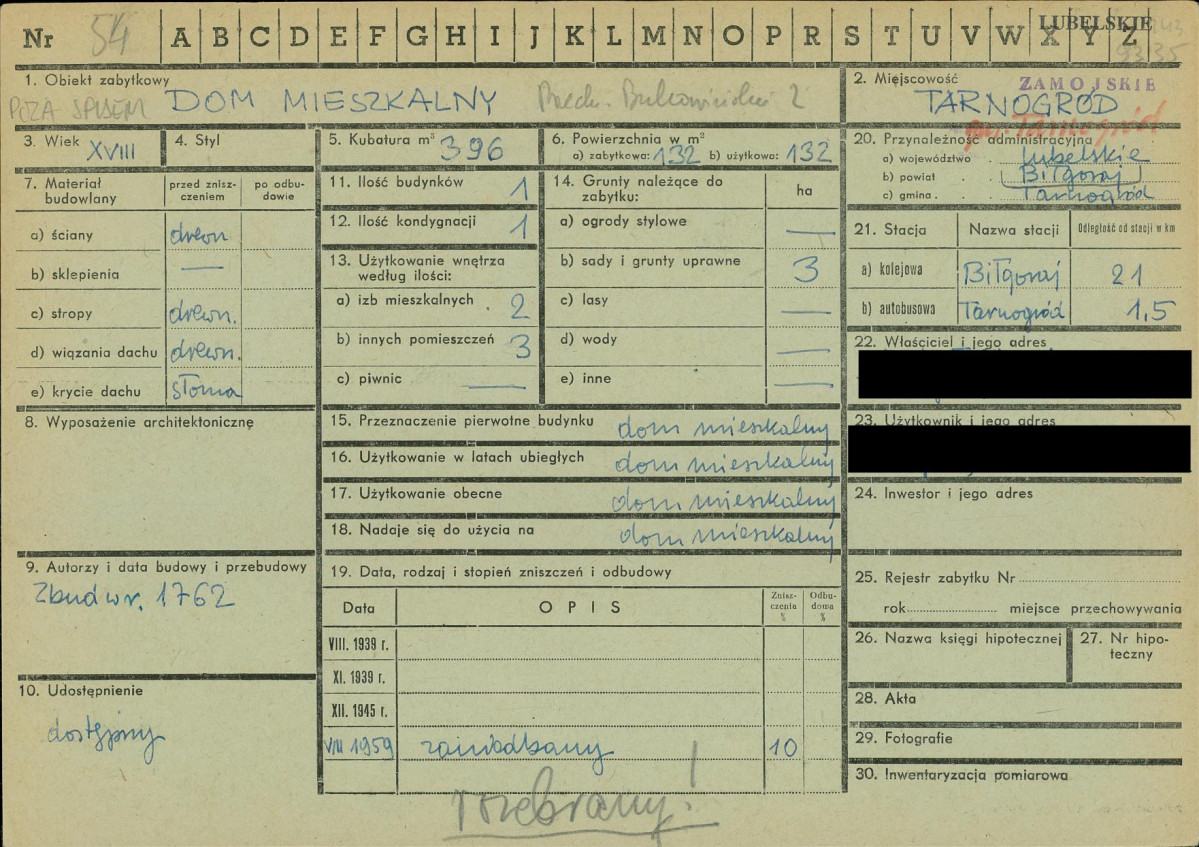 Nr 54 A B C D E F G H I J K L M N O P R S T U V W X Y Z
LUBELSKIE
1. Obiekt zabytkowy
POZA SPISEM DOM MIESZKALNY
2. Miejscowość
ZAMOJSKIE
TARNOGRÓD
gm. Tarnogród
3. Wiek XVIII
4. Styl
5. Kubatura m³ 396
6. Powierzchnia w m²
a) zabytkowa: 132 b) użytkowa: 132
7. Materiał budowlany
przed zniszczeniem
po odbudowie
a) ściany drewn.
b) sklepienia —
c) stropy drewn.
d) wiązania dachu drewn.
e) krycie dachu słoma
8. Wyposażenie architektoniczne
9. Autorzy i data budowy i przebudowy
Zbud w r. 1762
10. Udostępnienie
dostępny
11. Ilość budynków 1
12. Ilość kondygnacji 1
13. Użytkowanie wnętrza
według ilości:
a) izb mieszkalnych 2
b) innych pomieszczeń 3
c) piwnic —
14. Grunty należące do
zabytku:
ha
a) ogrody stylowe —
b) sady i grunty uprawne 3
c) lasy —
d) wody —
e) inne —
15. Przeznaczenie pierwotne budynku dom mieszkalny
16. Użytkowanie w latach ubiegłych dom mieszkalny
17. Użytkowanie obecne dom mieszkalny
18. Nadaje się do użycia na dom mieszkalny
19. Data, rodzaj i stopień zniszczeń i odbudowy
Data OPIS Zniszczenia % Odbudowa %
VIII. 1939 r.
XI. 1939 r.
XII. 1945 r.
VIII 1959 zaniedbany 10
rozebrany!
20. Przynależność administracyjna
a) województwo . lubelskie
b) powiat . . Biłgoraj
c) gmina . . Tarnogród
21. Stacja Nazwa stacji Odległość od stacji w km
a) kolejowa Biłgoraj 21
b) autobusowa Tarnogród 1,5
22. Właściciel i jego adres
23. Użytkownik i jego adres
24. Inwestor i jego adres
25. Rejestr zabytku Nr
rok miejsce przechowywania
26. Nazwa księgi hipotecznej
27. Nr hipoteczny
28. Akta
29. Fotografie
30. Inwentaryzacja pomiarowa